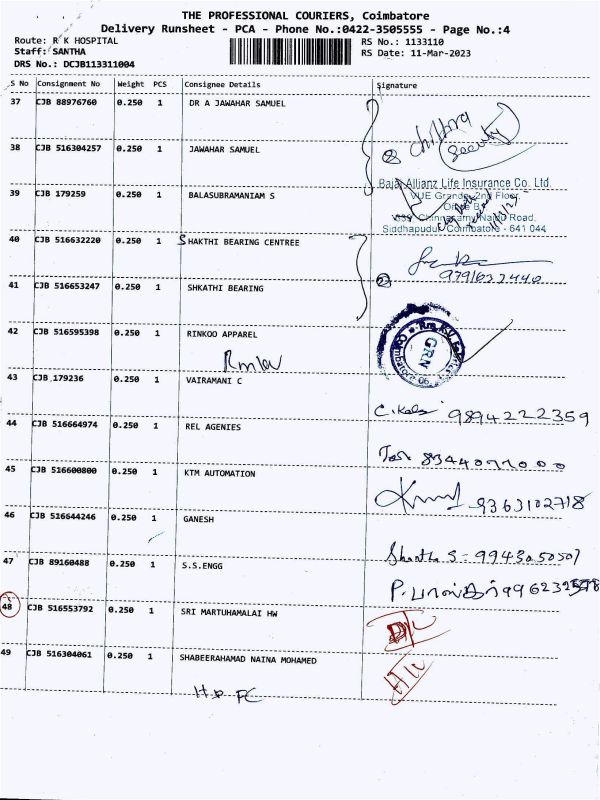 THE PROFESSIONAL COURIERS, Coimbatore
Delivery Runsheet - PCA - Phone No.:0422-3505555 - Page No.:4
Route: R K HOSPITAL
Staff: SANTHA
DRS No.: DCJB113311004
RS No.: 1133110
RS Date: 11-Mar-2023
S No Consignment No Weight PCS Consignee Details Signature
37 CJB 88976760 0.250 1 DR A JAWAHAR SAMUEL
38 CJB 516304257 0.250 1 JAWAHAR SAMUEL
chithra
Security
39 CJB 179259 0.250 1 BALASUBRAMANIAM S
Bajaj Allianz Life Insurance Co. Ltd.
VUE Grande, 2nd Floor,
Office B
Chinnasamy Naidu Road,
Siddhapudur, Coimbatore - 641 044
40 CJB 516632220 0.250 1 SHAKTHI BEARING CENTREE
9791632440
41 CJB 516653247 0.250 1 SHKATHI BEARING
42 CJB 516595398 0.250 1 RINKOO APPAREL
GRN
43 CJB 179236 0.250 1 VAIRAMANI C
C. Kala 9894222359
44 CJB 516664974 0.250 1 REL AGENIES
45 CJB 516600800 0.250 1 KTM AUTOMATION
9363102718
46 CJB 516644246 0.250 1 GANESH
Shantha S - 9943050507
47 CJB 89160488 0.250 1 S.S.ENGG
48 CJB 516553792 0.250 1 SRI MARTUHAMALAI HW
D/L
49 CJB 516304061 0.250 1 SHABEERAHAMAD NAINA MOHAMED